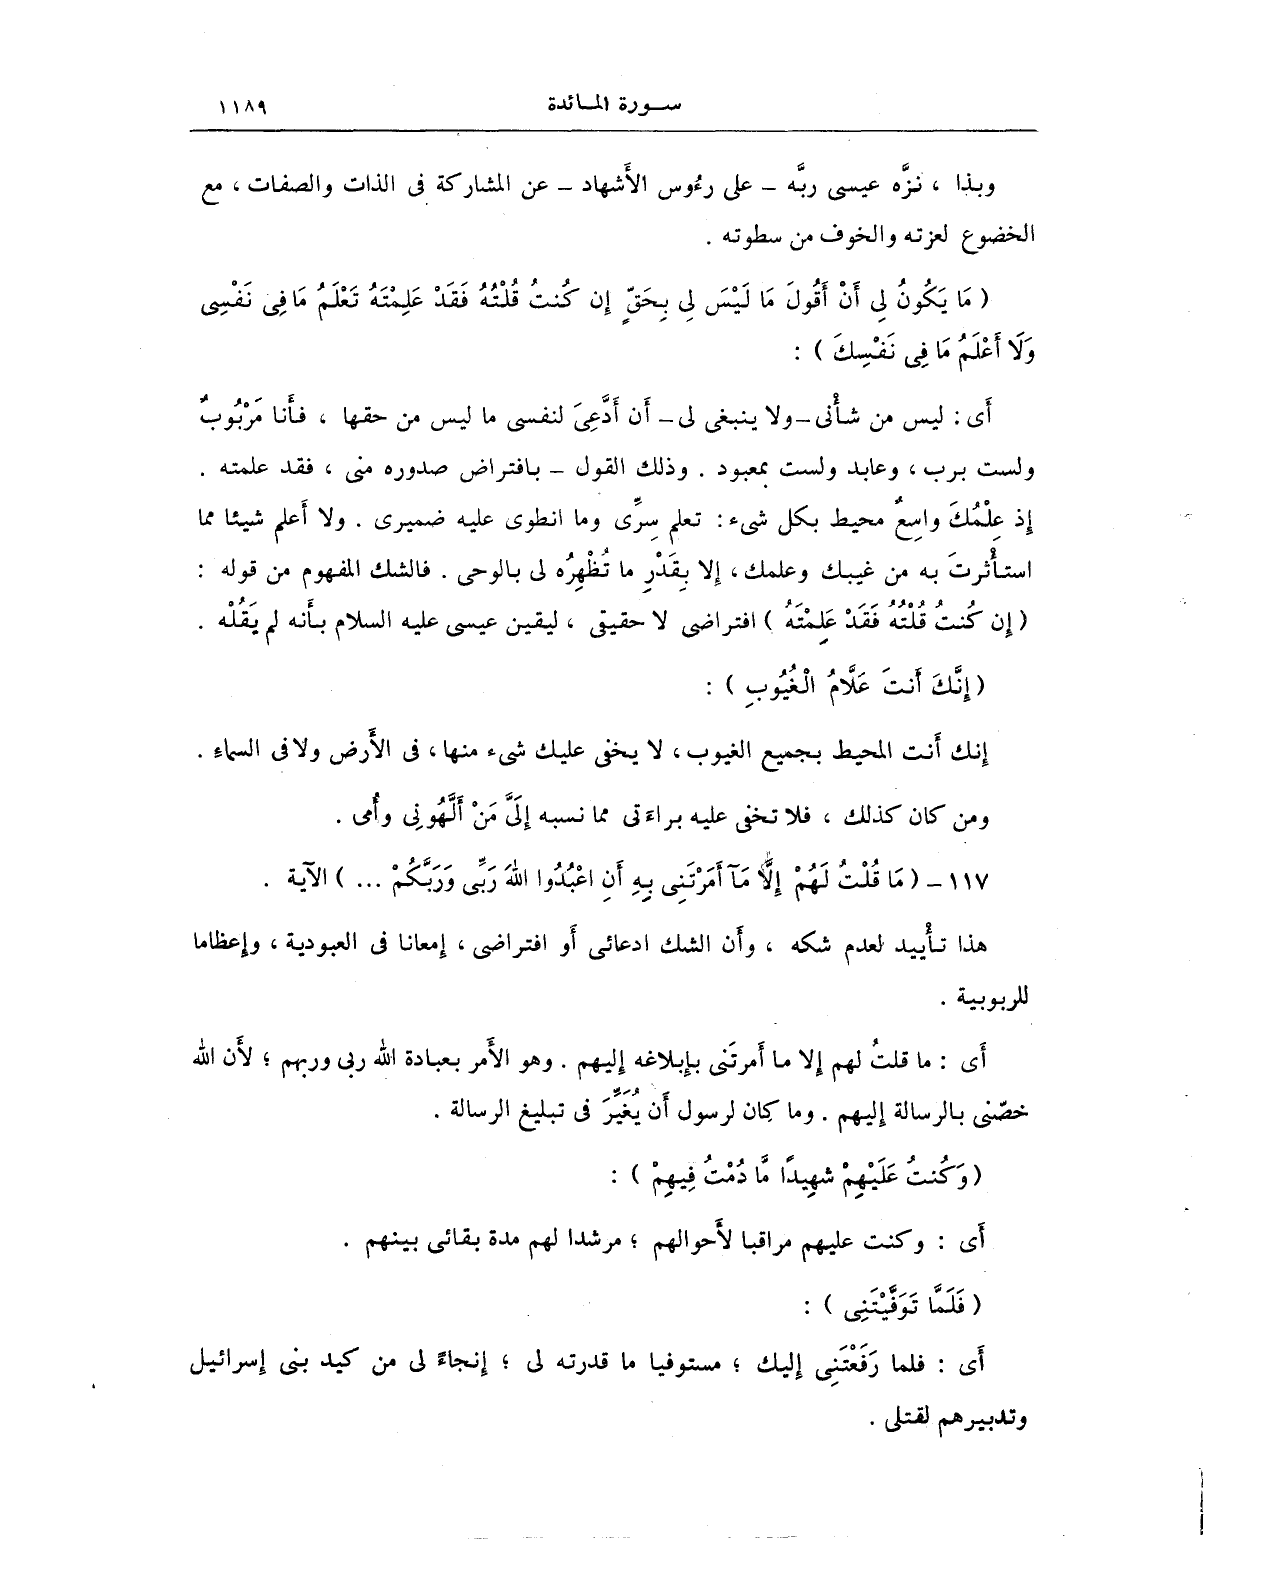 سورة المائدة ١١٨٩
وبذا ، نزَّه عيسى ربَّه – على رءُوس الأَشهاد – عن المشاركة فى الذات والصفات ، مع
الخضوع لعزته والخوف من سطوته .
( مَا يَكُونُ لِى أَنْ أَقُولَ مَا لَيْسَ لِى بِحَقٍّ إِن كُنتُ قُلْتُهُ فَقَدْ عَلِمْتَهُ تَعْلَمُ مَا فِى نَفْسِى
وَلَا أَعْلَمُ مَا فِى نَفْسِكَ ) :
أَى : ليس من شأْنى –ولا ينبغى لى– أَن أَدَّعِىَ لنفسى ما ليس من حقها ، فأَنا مَرْبُوبٌ
ولست برب ، وعابد ولست بمعبود . وذلك القول – بافتراض صدوره منى ، فقد علمته .
إِذ عِلْمُكَ واسِعٌ محيط بكل شىء : تعلم سِرِّى وما انطوى عليه ضميرى . ولا أَعلم شيئا مما
استأْثرتَ به من غيبك وعلمك ، إِلا بِقَدْرِ ما تُظْهِرُه لى بالوحى . فالشك المفهوم من قوله :
( إِن كُنتُ قُلْتُهُ فَقَدْ عَلِمْتَهُ ) افتراضى لا حقيقى ، ليقين عيسى عليه السلام بأَنه لم يَقُلْه .
( إِنَّكَ أَنتَ عَلَّامُ الْغُيُوبِ ) :
إِنك أَنت المحيط بجميع الغيوب ، لا يخفى عليك شىء منها ، فى الأَرض ولا فى السماء .
ومن كان كذلك ، فلا تخفى عليه براءَتى مما نسبه إِلَىَّ مَنْ أَلَّهُونِى وأُمى .
١١٧ – ( مَا قُلْتُ لَهُمْ إِلَّا مَآ أَمَرْتَنِى بِهِ أَنِ اعْبُدُوا اللهَ رَبِّى وَرَبَّكُمْ ... ) الآية .
هذا تأْييد لعدم شكه ، وأَن الشك ادعائى أَو افتراضى ، إِمعانا فى العبودية ، وإِعظاما
للربوبية .
أَى : ما قلتُ لهم إِلا ما أَمرتَنى بإِبلاغه إِليهم . وهو الأَمر بعبادة الله ربى وربهم ؛ لأَن الله
خصّنى بالرسالة إِليهم . وما كان لرسول أَن يُغَيِّرَ فى تبليغ الرسالة .
( وَكُنتُ عَلَيْهِمْ شَهِيدًا مَّا دُمْتُ فِيهِمْ ) :
أَى : وكنت عليهم مراقبا لأَحوالهم ؛ مرشدا لهم مدة بقائى بينهم .
( فَلَمَّا تَوَفَّيْتَنِى ) :
أَى : فلما رَفَعْتَنِى إِليك ؛ مستوفيا ما قدرته لى ؛ إِنجاءً لى من كيد بنى إِسرائيل
وتدبيرهم لقتلى .